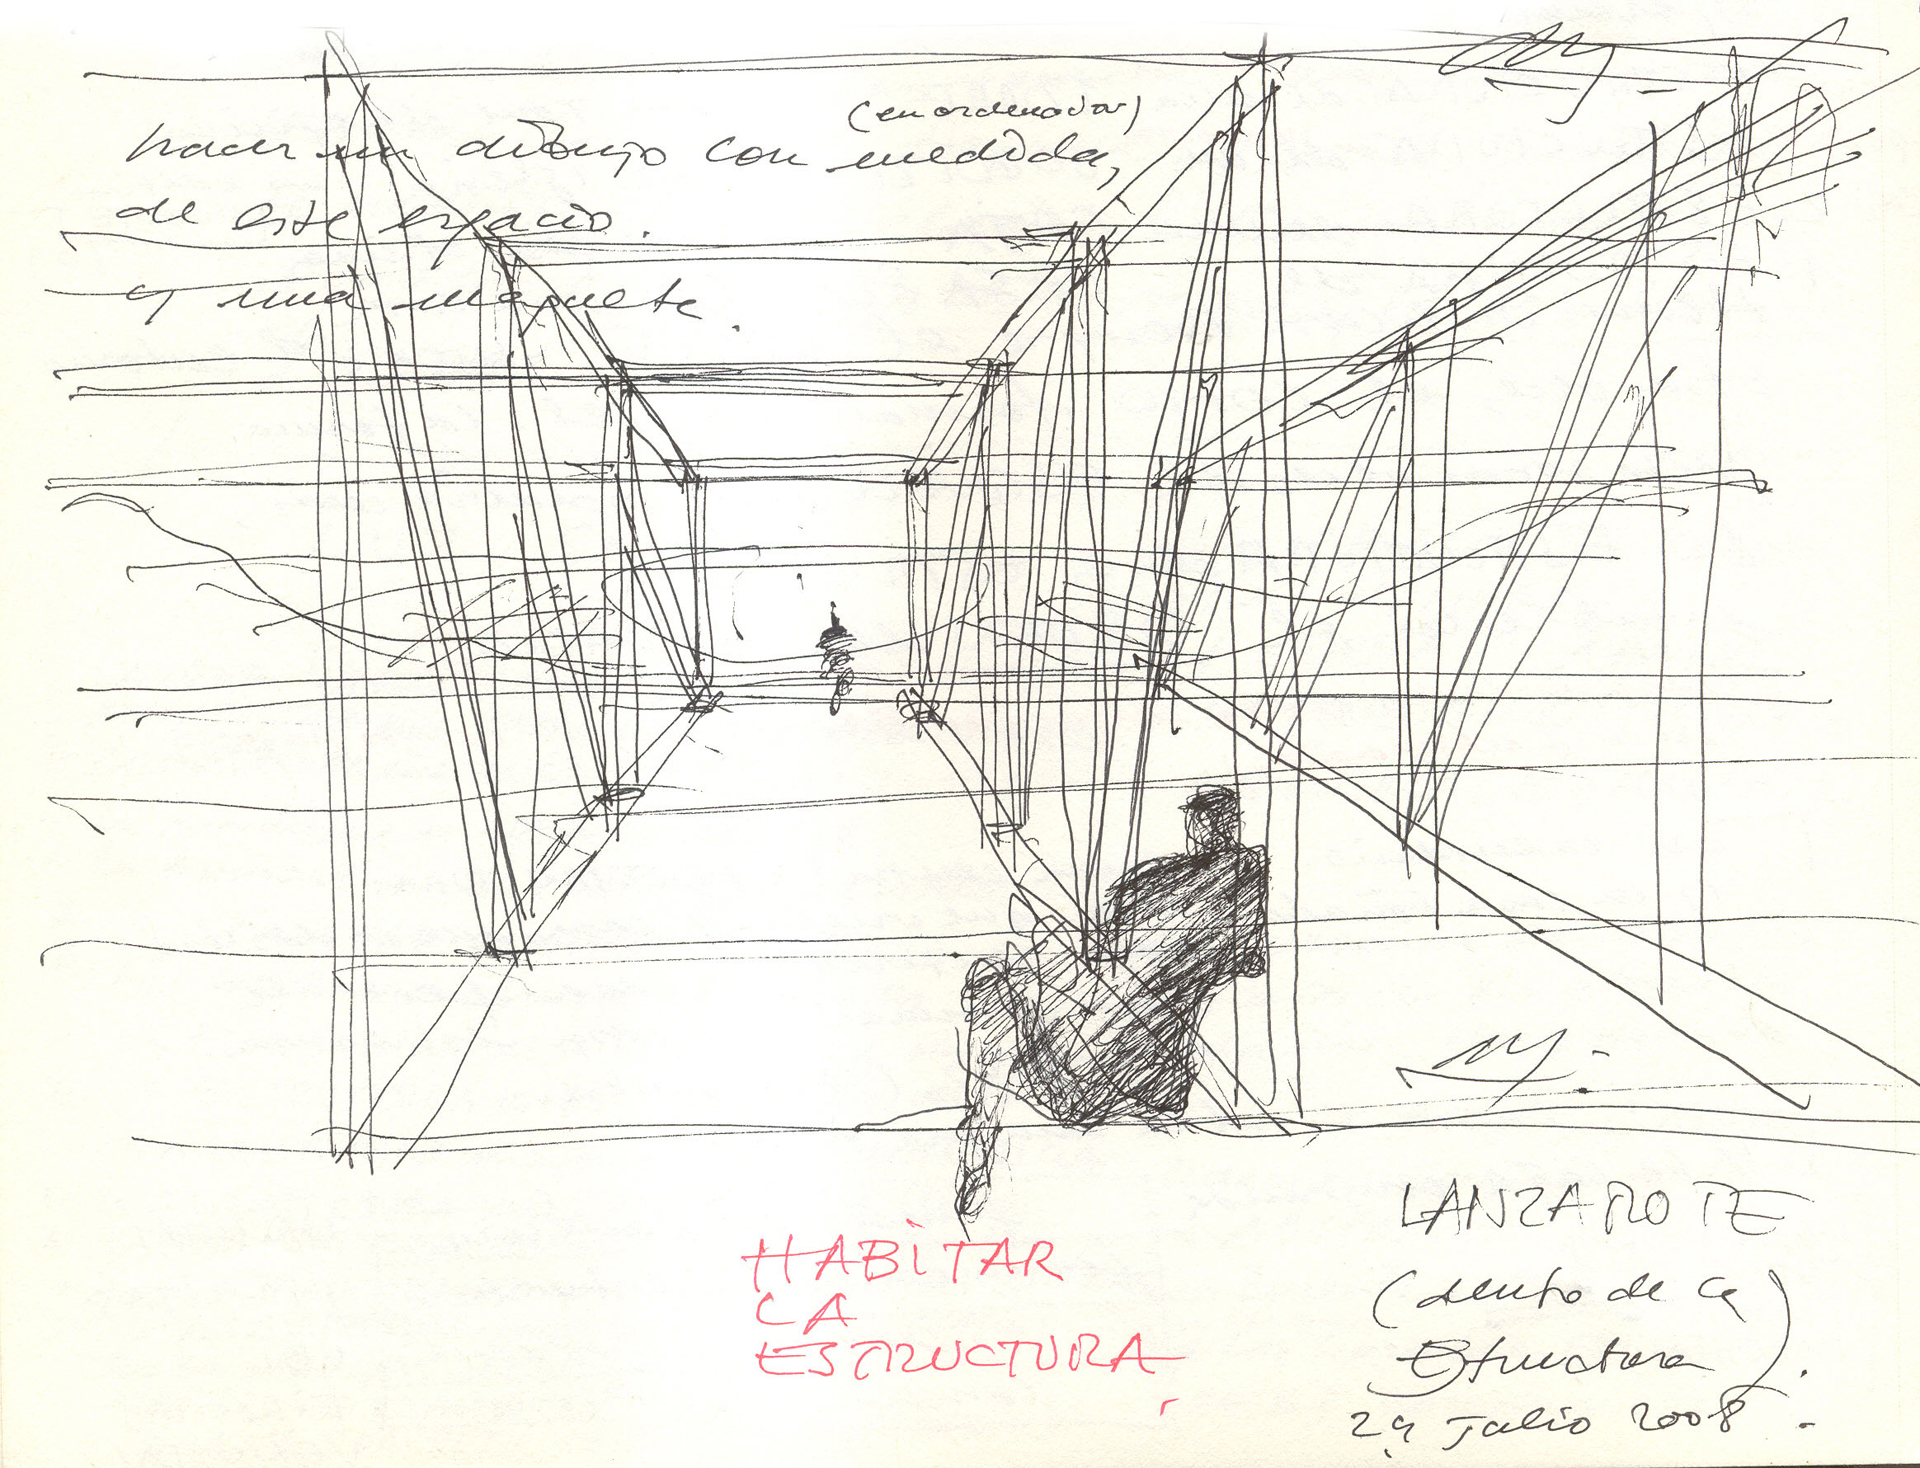 (en ordenador)
hacer un dibujo con medida,
de este espacio.
y una maqueta.
HABITAR
LA
ESTRUCTURA
LANZAROTE
(dentro de la
Estructura).
29 Julio 2008.